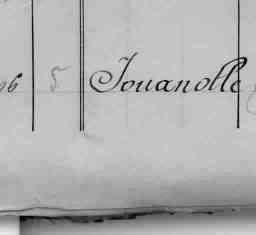 96 5 Jouanolle